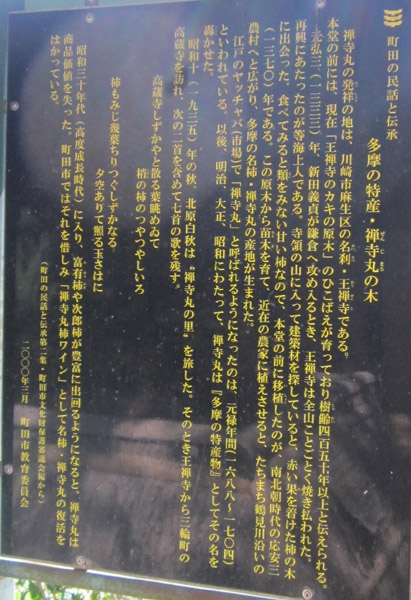 町田の民話と伝承
多摩の特産・禅寺丸の木
禅寺丸の発祥の地は、川崎市麻生区の名刹・王禅寺である。
本堂の前には、現在「王禅寺のカキの原木」のひこばえが育っており樹齢四百五十年以上と伝えられる。
元弘三（一三三三）年、新田義貞が鎌倉へ攻め入るとき、王禅寺は全山ことごとく焼き払われた。
再興にあたったのが等海上人である。寺領の山に入って建築材を探していると、赤い果を着けた柿の木
に出会った。食べてみると類をみない甘い柿なので、本堂の前に移植したのが、南北朝時代の応安三
（一三七〇）年である。この原木から苗木を育て、近在の農家に植えさせると、たちまち鶴見川沿いの
農村へと広がり、多摩の名柿・禅寺丸の産地が生まれた。
江戸のヤッチャバ（市場）で「禅寺丸」と呼ばれるようになったのは、元禄年間（一六八八〜一七〇四）
といわれている。以後、明治、大正、昭和にわたって、禅寺丸は『多摩の特産物』としてその名を
轟かせた。
昭和十（一九三五）年の秋、北原白秋は〝禅寺丸の里〟を旅した。そのとき王禅寺から三輪町の
高蔵寺を訪れ、次の二首を含めて七首の歌を残す。
高蔵寺しずかやと散る葉眺めゐて
梢の柿のつやつやしいろ
柿もみじ幾葉ちりつぐしずかなる
夕空ありて照る玉きはに
昭和三十年代（高度成長時代）に入り、富有柿や次郎柿が豊富に出回るようになると、禅寺丸は
商品価値を失った。町田市ではそれを惜しみ「禅寺丸柿ワイン」として名柿・禅寺丸の復活を
はかっている。
（町田の民話と伝承第二集・町田市文化財保護審議会編から）
二〇〇〇年三月　町田市教育委員会